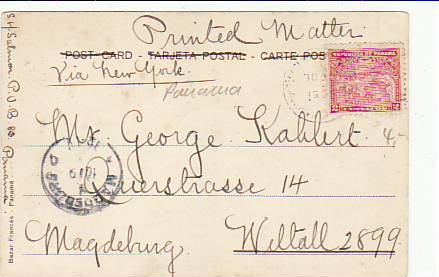 Printed Matter
POST CARD – TARJETA POSTAL – CARTE POS
Via New York.
Panama
REPUBLICA DE PANAMA
Mr. George Kahlert
4,-
Querstrasse 14
Magdeburg
Weltall 2899
MAGDEBURG
Bazar Français - Panamá
Panama